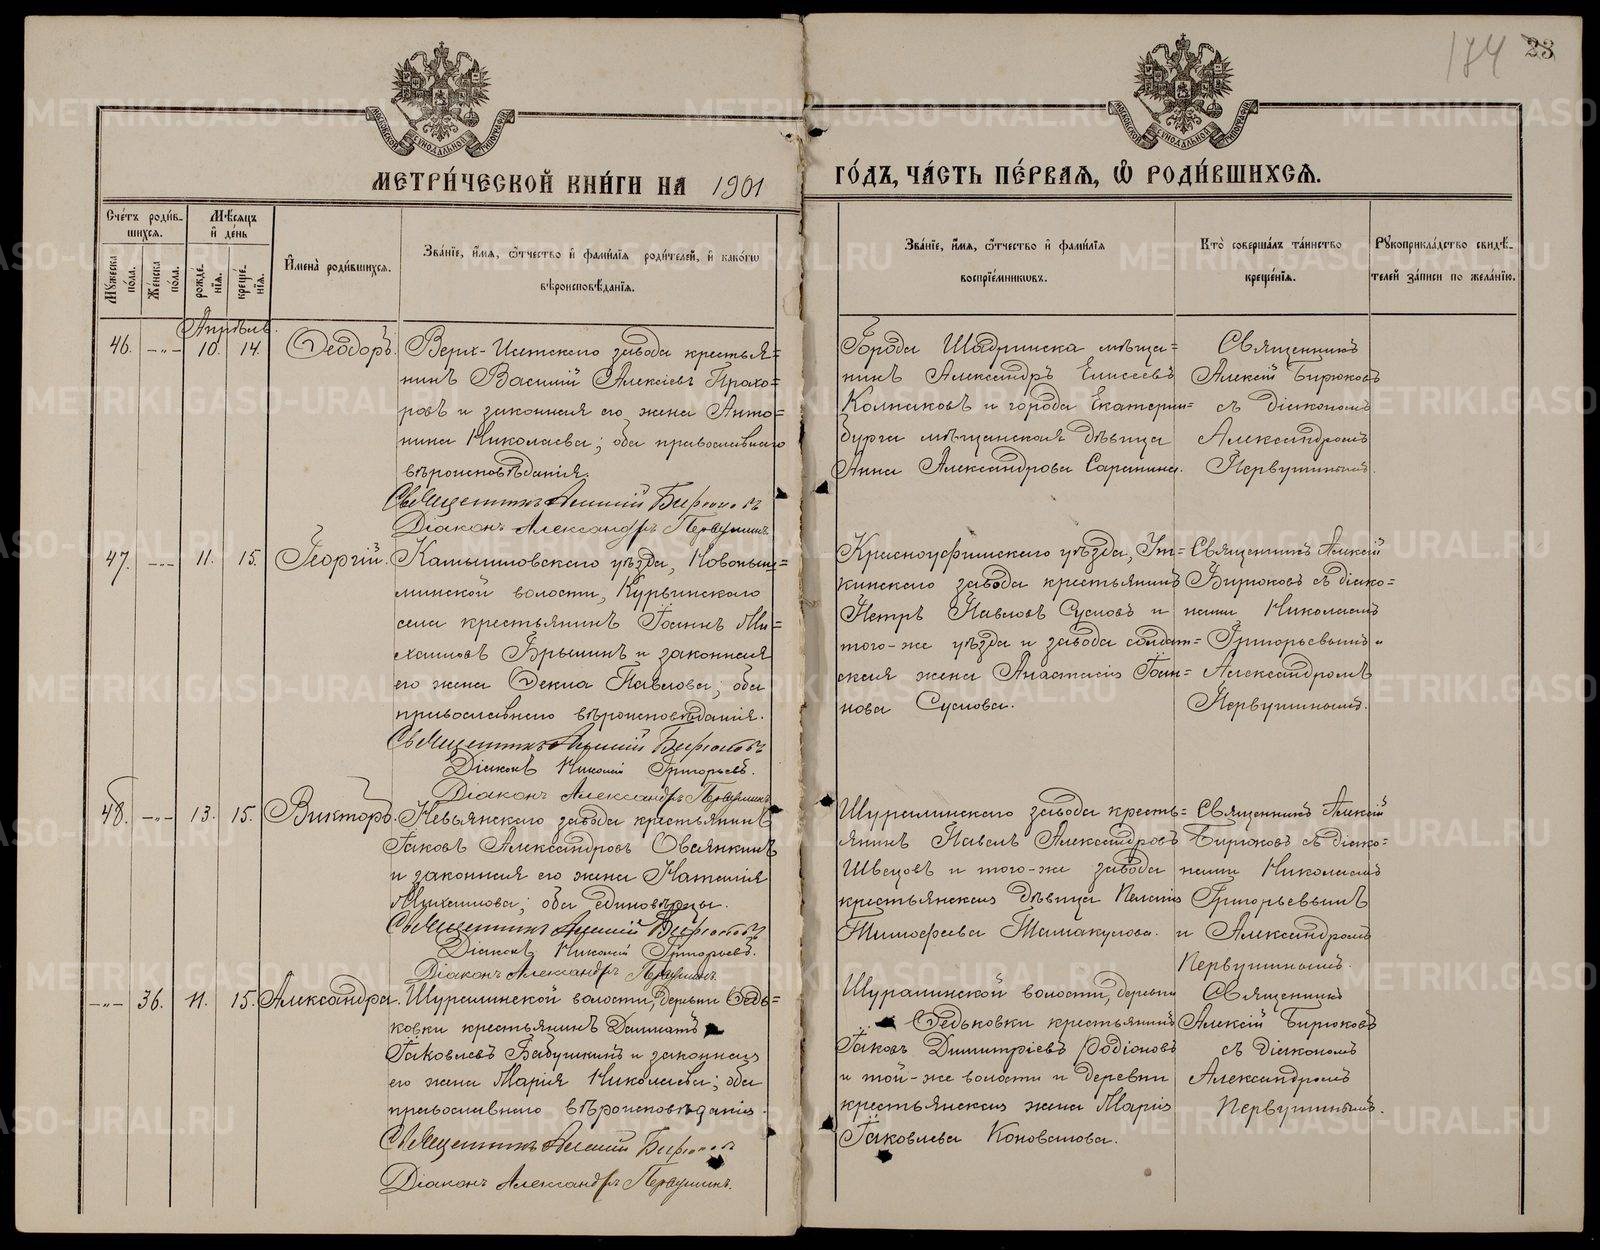 174 23
МОСКОВСКОЙ СѴНОДАЛЬНОЙ ТИПОГРАФІИ
МОСКОВСКОЙ СѴНОДАЛЬНОЙ ТИПОГРАФІИ
МЕТРИ́ЧЕСКОЙ КНИ́ГИ НА 1901 ГО́ДЪ, ЧА́СТЬ ПЕ́РВАЯ, Ѽ РОДИ́ВШИХСЯ.
Сче́тъ роди́в-
шихся.
Му́жеска по́ла.
Же́нска по́ла.
Мѣ́сяцъ
и҆ де́нь
рожде́-
нїя.
креще́-
нїя.
И҆мена̀ роди́вшихся.
Зва́нїе, и҆́мя, ѻ҆́тчество и҆ фами́лїя роди́телей, и҆ како́гѡ
вѣроисповѣ́данїя.
Зва́нїе, и҆́мя, ѻ҆́тчество и҆ фами́лїя
воспрїе́мникѡвъ.
Кто̀ соверша́лъ та́инство
креще́нїя.
Рꙋкоприкла́дство свидѣ́-
телей за́писи по жела́нїю.
Апрѣль.
46. -"- 10. 14. Ѳеодоръ.
Верх-Исетскаго завода крестья=
нинъ Василій Алексѣевъ Прохо=
ровъ и законная его жена Анто=
нина Николаева; оба православнаго
вѣроисповѣданія.
Священникъ Алексій Бирюковъ
Діаконъ Александръ Первушинъ
Города Шадринска мѣща=
нинъ Александръ Елисеевъ
Колпаковъ и города Екатерин=
бурга мѣщанская дѣвица
Анна Александрова Саранина.
Священникъ
Алексій Бирюковъ
съ діакономъ
Александромъ
Первушинымъ.
47. -"- 11. 15. Георгій.
Камышловскаго уѣзда, Новопыш=
минской волости, Курьинскаго
села крестьянинъ Іоаннъ Ми=
хаиловъ Брылинъ и законная
его жена Ѳекла Павлова; оба
православнаго вѣроисповѣданія.
Священникъ Алексій Бирюковъ
Діаконъ Николай Григорьевъ.
Діаконъ Александръ Первушинъ
Красноуфимскаго уѣзда, Ут=
кинскаго завода крестьянинъ
Петръ Павловъ Сусловъ и
того-же уѣзда и завода солдат=
ская жена Анастасія Іоан=
нова Суслова.
Священникъ Алексій
Бирюковъ съ діако=
нами Николаемъ
Григорьевымъ и
Александромъ
Первушинымъ.
48. -"- 13. 15. Викторъ.
Невьянскаго завода крестьянинъ
Іаковъ Александровъ Овсянкинъ
и законная его жена Наталія
Михаилова; оба единовѣрцы.
Священникъ Алексій Бирюковъ
Діаконъ Николай Григорьевъ.
Діаконъ Александръ Первушинъ.
Шуралинскаго завода кресть=
янинъ Павелъ Александровъ
Швецовъ и того-же завода
крестьянская дѣвица Пелагія
Тимофеева Тамакулова.
Священникъ Алексій
Бирюковъ съ діако=
нами Николаемъ
Григорьевымъ
и Александромъ
Первушинымъ.
-"- 36. 11. 15. Александра.
Шуралинской волости, деревни Ѳедь=
ковки крестьянинъ Далматъ
Іаковлевъ Бабушкинъ и законная
его жена Марія Николаева; оба
православнаго вѣроисповѣданія.
Священникъ Алексій Бирюковъ
Діаконъ Александръ Первушинъ.
Шуралинской волости, деревни
Ѳедьковки крестьянинъ
Іаковъ Димитріевъ Родіоновъ
и той-же волости и деревни
крестьянская жена Марія
Іаковлева Коновалова.
Священникъ
Алексій Бирюковъ
съ діакономъ
Александромъ
Первушинымъ.
METRIKI.GASO-URAL.RU